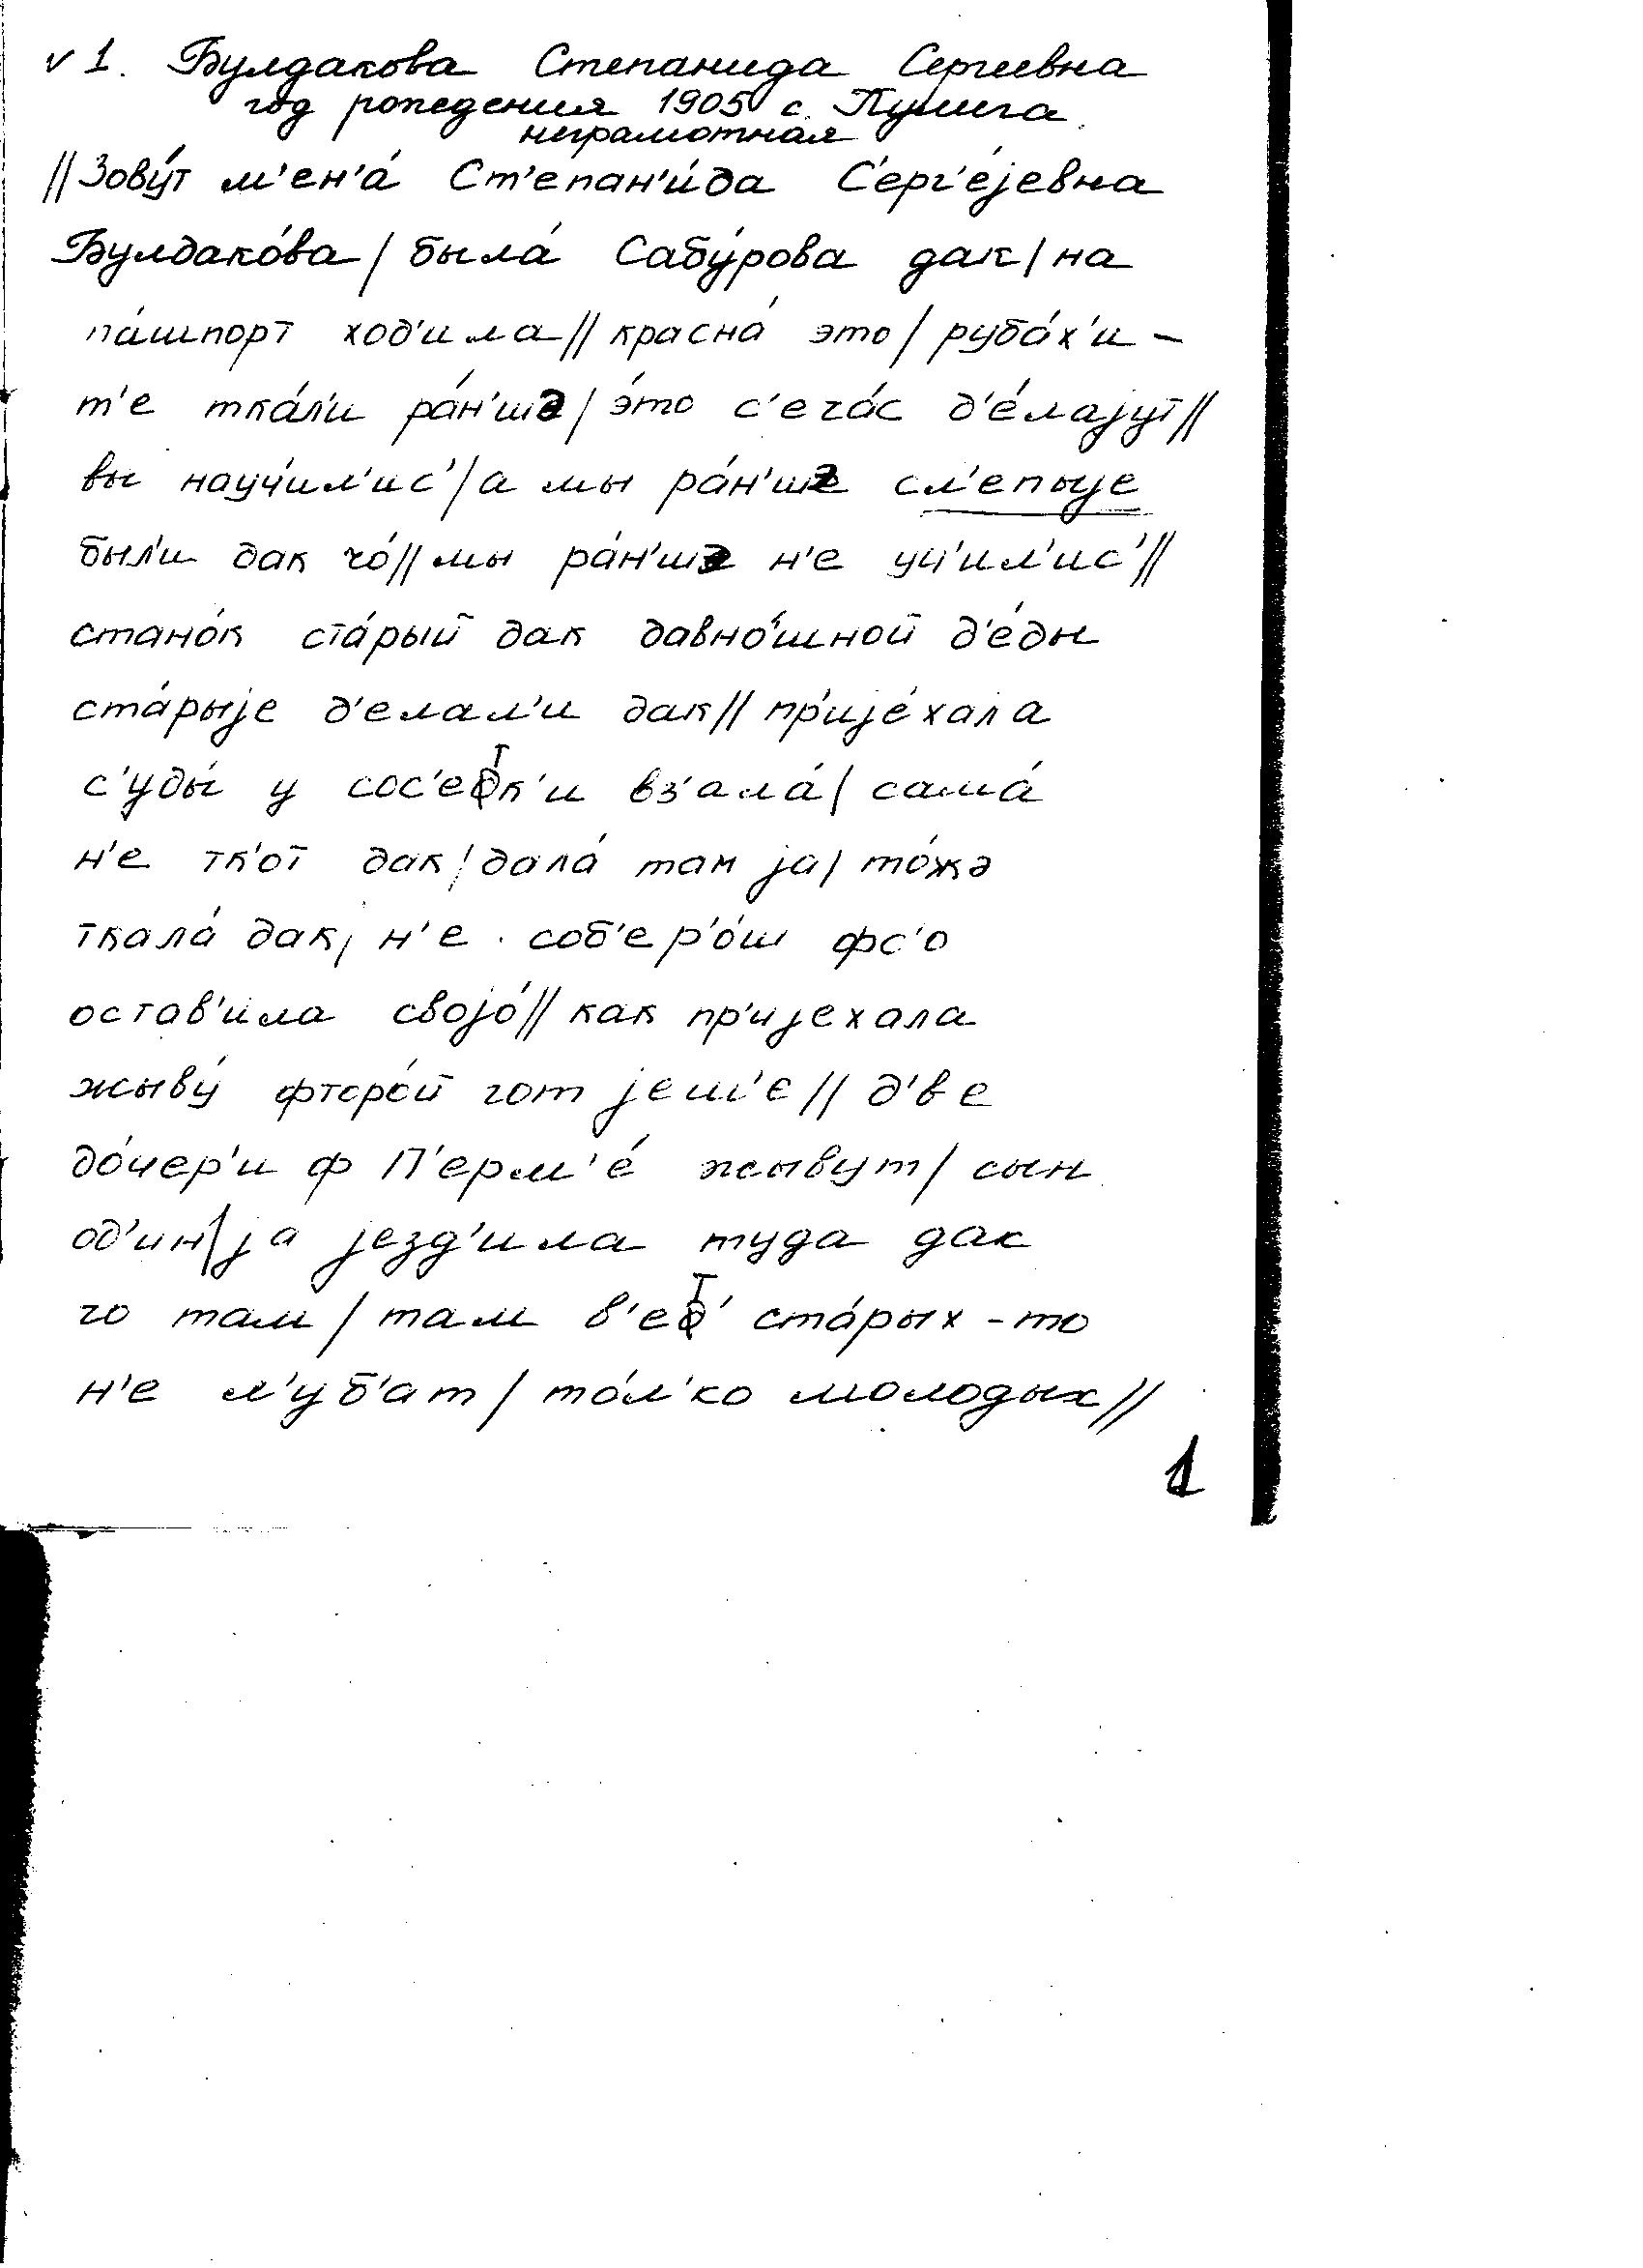 v 1. Булдакова Степанида Сергеевна
год рождения 1905 с. Кулига
неграмотная
// Зову́т м'ен'а́ Ст'епан'и́да С'ерг'е́jевна
Булдако́ва / была́ Сабу́рова дак / на
па́шпорт ход'и́ла // красна́ это / руба́х'и –
т'е тка́л'и ра́н'шэ / э́то с'еча́с д'е́лаjут //
вы научи́л'ис' / а мы ра́н'шэ сл'епыjе
был'и дак чо́ // мы ра́н'шэ н'е уч'ил'ис' //
стано́к ста́рый дак давно́шной д'е́ды
ста́рыjе д'елал'и дак // пр'иjе́хала
с'уды́ у сос'етк'и вз'ала́ / сама́
н'е тк'от дак / дала́ там jа / то́жэ
ткала́ дак / н'е соб'ер'о́ш фс'о
остав'и́ла своjо́ // как пр'иjехала
жыву́ фторо́й гот jеш'е // д'ве
до́чер'и ф П'ерм'е́ жывут / сын
од'ин / jа jезд'ила туда дак
чо там / там в'ет' ста́рых – то
н'е л'уб'ат / то́л'ко молодых //
1